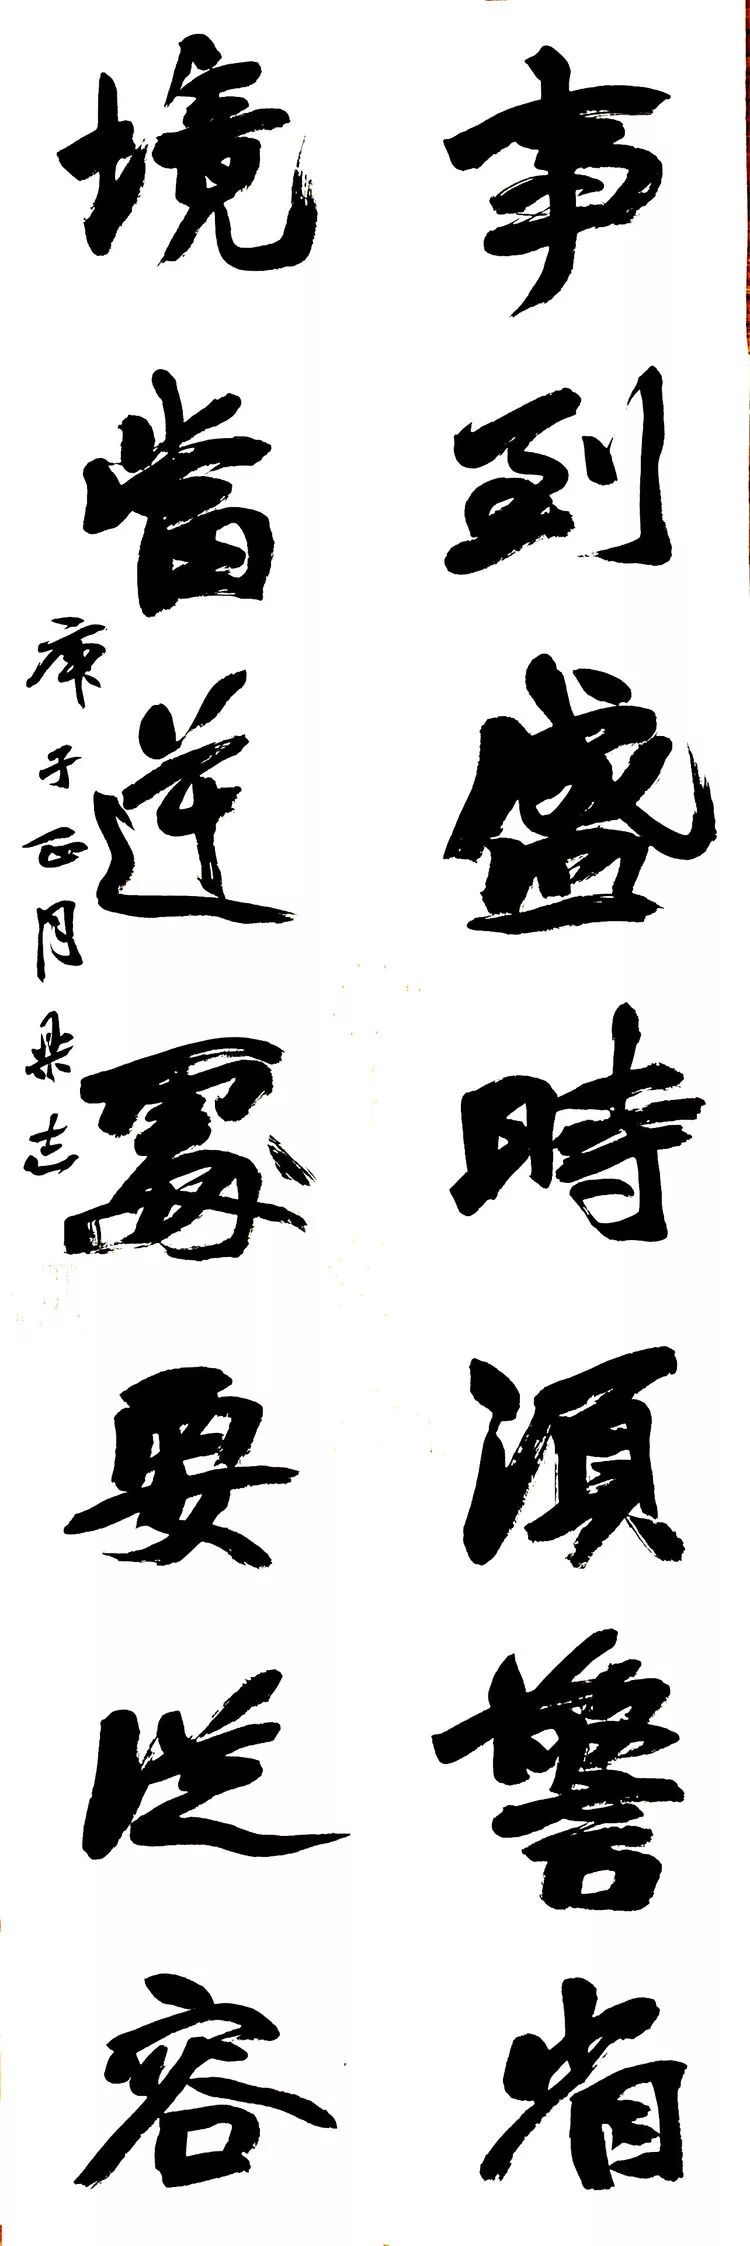 事到盛時須警省
境當逆處要從容
庚子正月